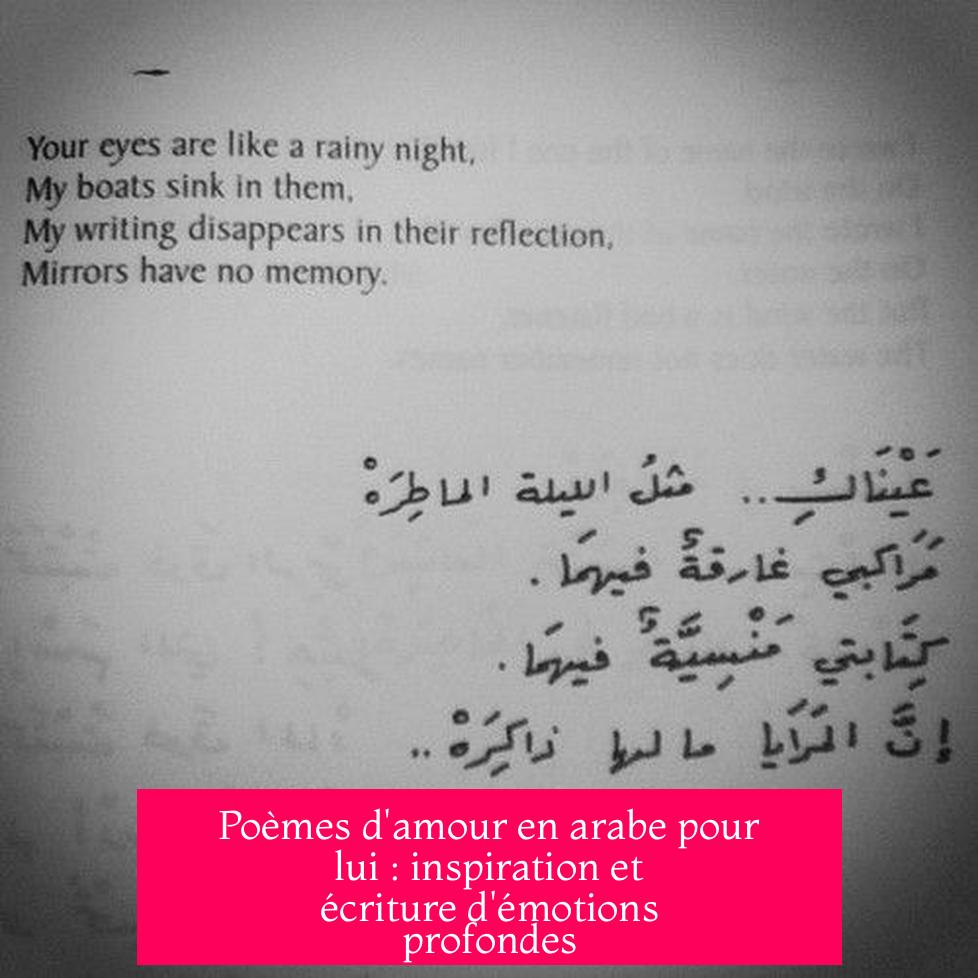 Your eyes are like a rainy night,
My boats sink in them,
My writing disappears in their reflection,
Mirrors have no memory.
عَيْنَاكِ .. مثلُ الليلة الماطِرَهْ
مَرَاكبي غارقةٌ فيهمَا .
كِتَابتي مَنْسِيَّةٌ فيهمَا .
إنَّ المَرَايا ما لها ذاكِرَهْ ..
Poèmes d'amour en arabe pour
lui : inspiration et
écriture d'émotions
profondes